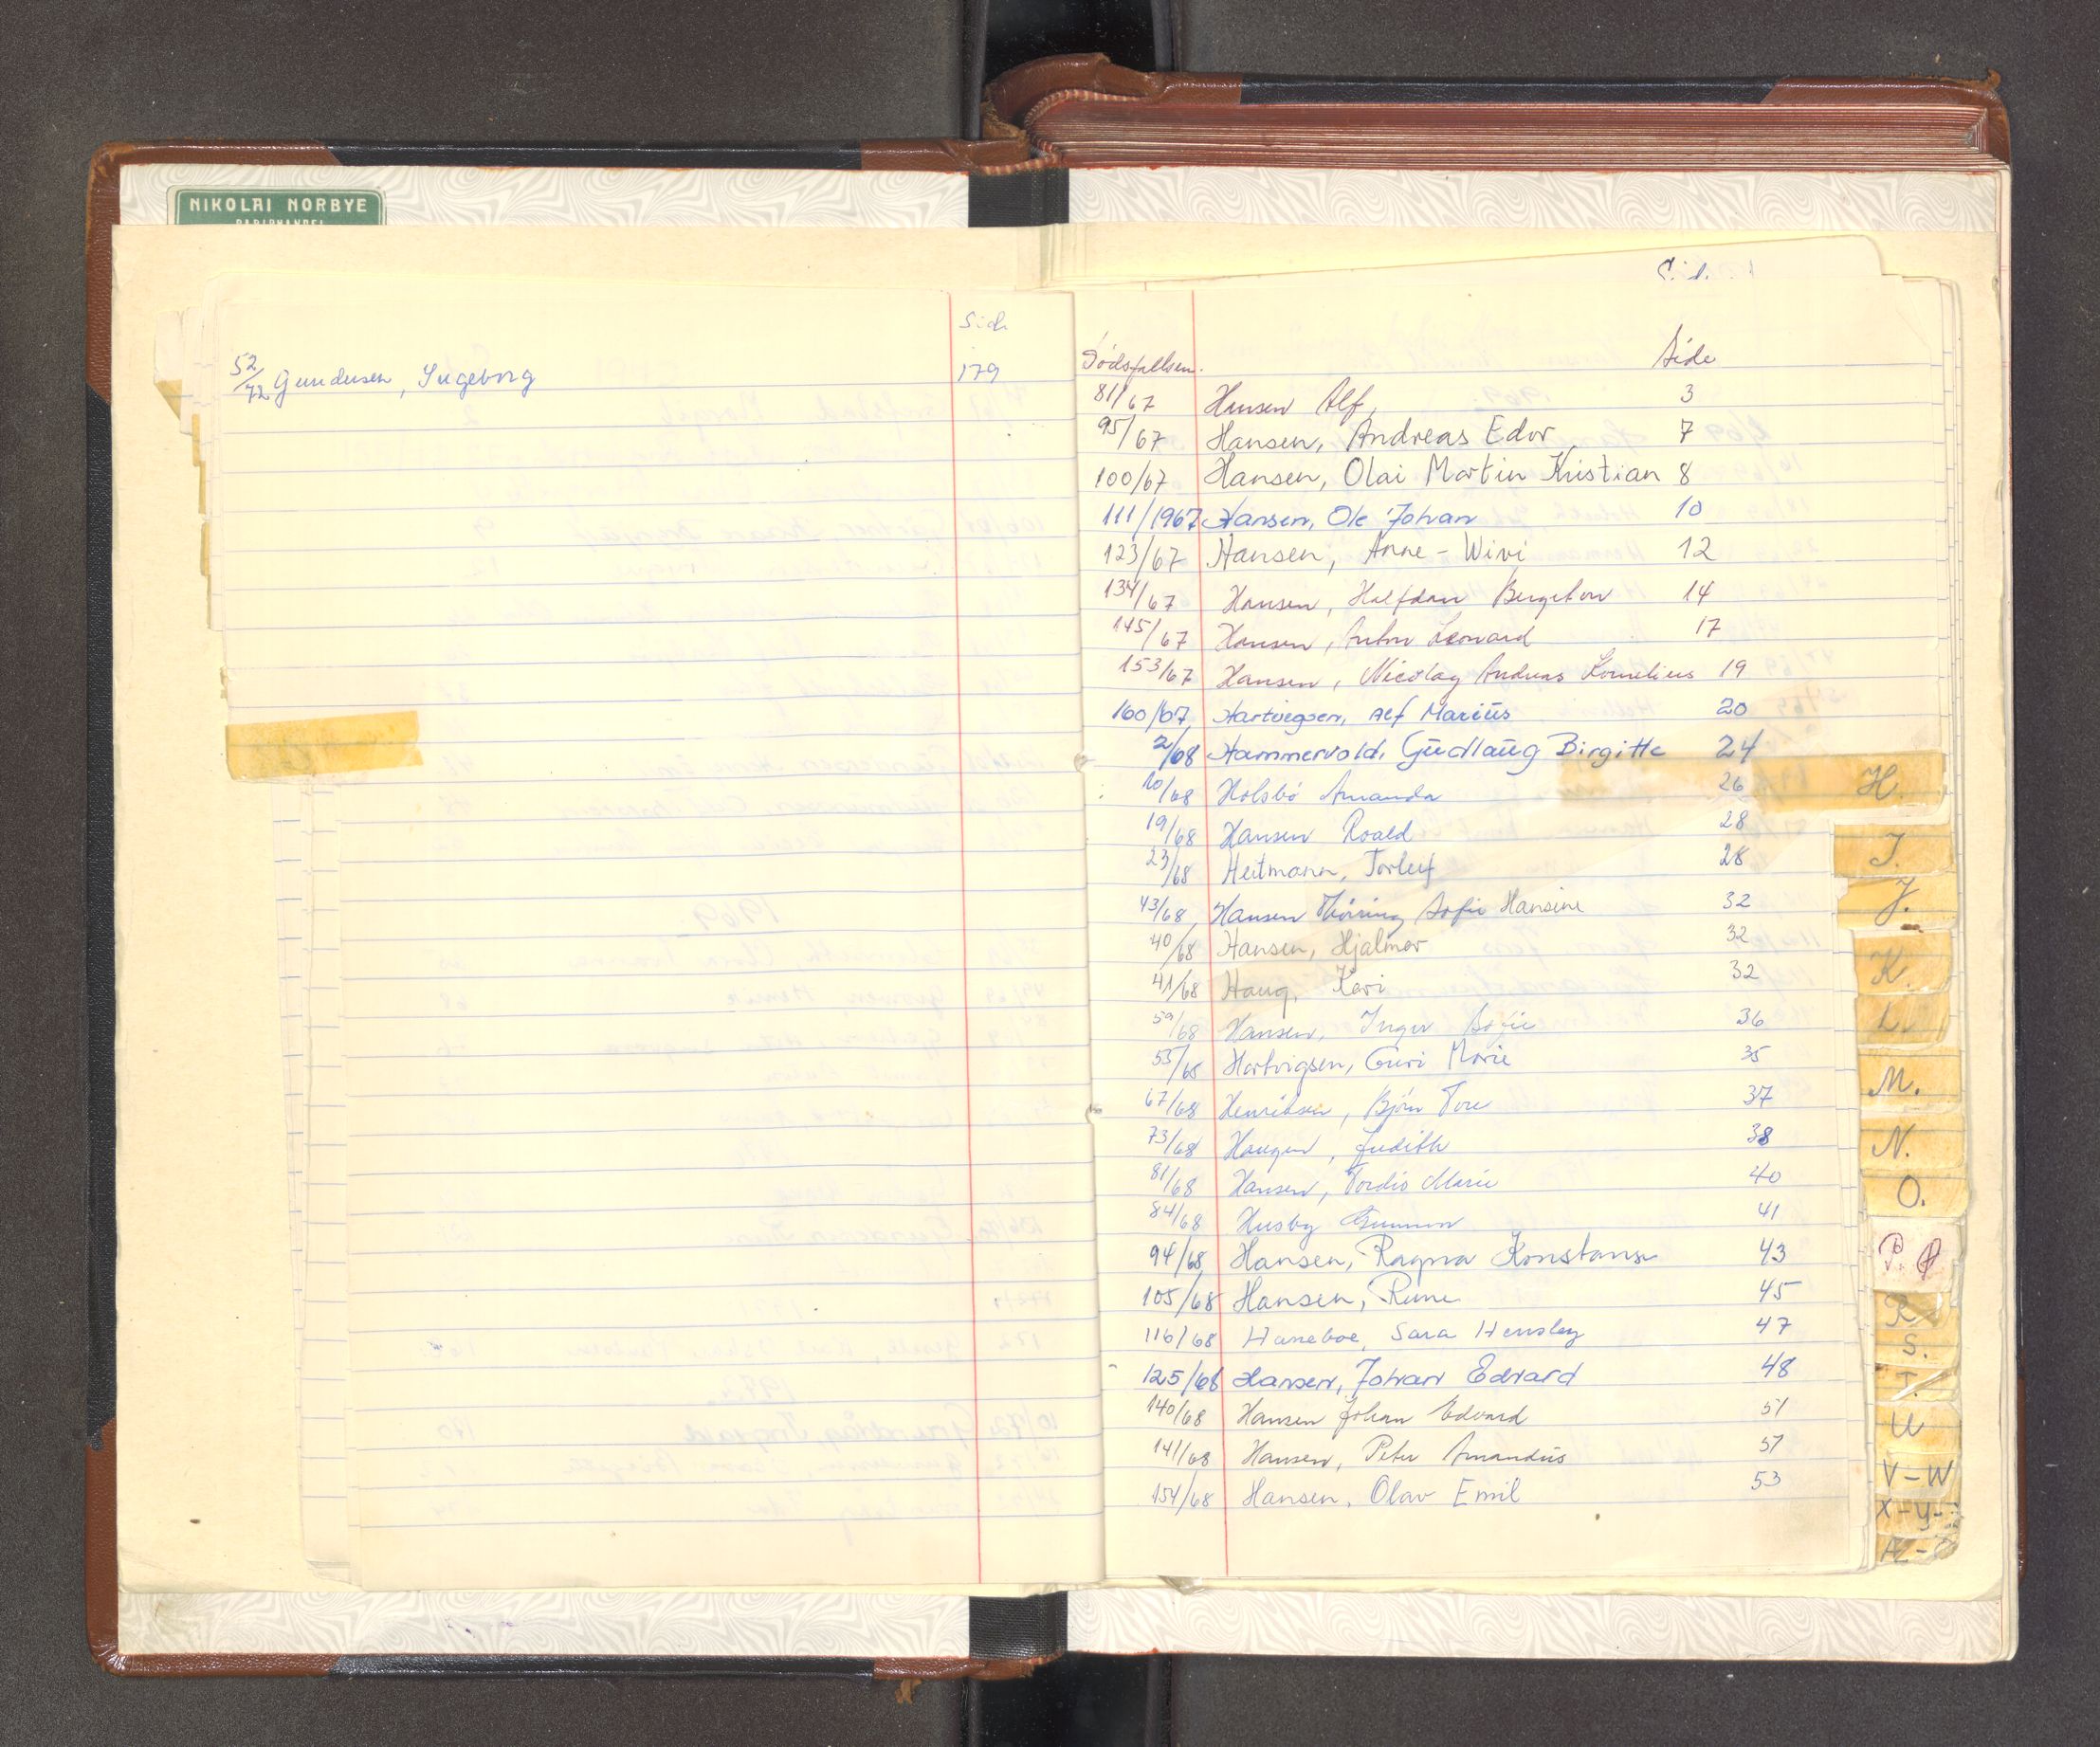 NIKOLAI NORBYE
PAPIRHANDEL
Side
52/72 Gundersen, Ingeborg 179
Dødsfallsnr. Side
81/67 Hansen Alf, 3
95/67 Hansen, Andreas Edor 7
100/67 Hansen, Olai Martin Kristian 8
111/1967 Hansen, Ole Johan 10
123/67 Hansen, Anne-Wivi 12
134/67 Hansen, Halfdan Bergeton 14
145/67 Hansen, Anton Leonard 17
153/67 Hansen, Nicolay Andreas Kornelius 19
160/67 Hartvigsen, Alf Marius 20
2/68 Hammervold, Gudlaug Birgitte 24
10/68 Holsbö Amanda 26
19/68 Hansen Roald 28
23/68 Heitmann, Torleif 28
43/68 Hansen Sofie Hansine 32
40/68 Hansen, Hjalmar 32
41/68 Haug, Kari 32
59/68 Hansen, Inger Sofie 36
55/68 Hartvigsen, Guri Marie 35
67/68 Henriksen, Bjørn Tore 37
73/68 Haugen, Judith 38
81/68 Hansen, Tordis Marie 40
84/68 Husby Gunnar 41
94/68 Hansen, Ragna Konstanse 43
105/68 Hansen, Rune 45
116/68 Haneboe, Sara Hensley 47
125/68 Hansen, Johan Edvard 48
140/68 Hansen Johan Edvard 51
141/68 Hansen, Peter Amandus 51
154/68 Hansen, Olav Emil 53
H.
I.
J.
K.
L.
M.
N.
O.
P.
R
S.
T.
U
V-W
X-Y-
Æ-